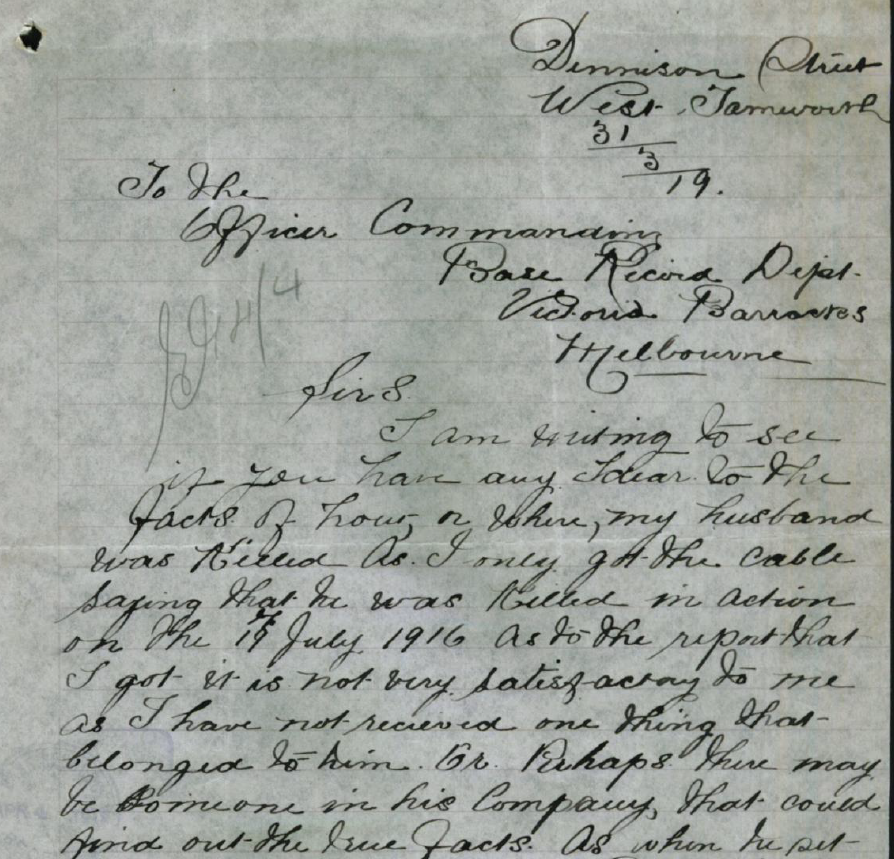 Dennison Street
West Tamworth
31
3
19.
To the
Officer Commanding
Base Record Dept.
Victoria Barrackes
Melbourne
Sirs
I am writing to see
if you have any Idear to the
facts of how, or where, my husband
was Killed As. I only got the cable
saying that he was Killed in action
on the 19 July 1916 As to the report that
I got it is not very satisfactory to me
as I have not recieved one thing that
belonged to him. Or. Perhaps there may
be Someone in his Company, that could
find out the true facts. As when he